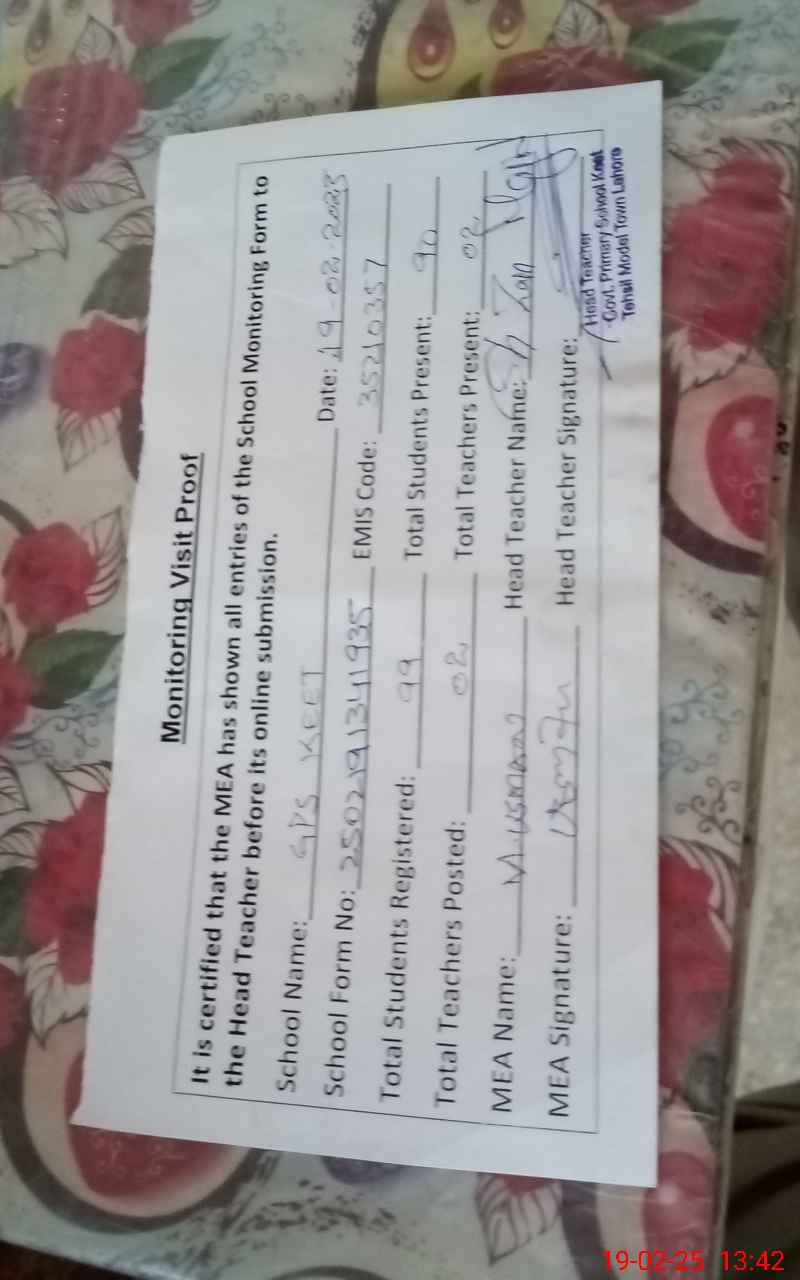 Monitoring Visit Proof
It is certified that the MEA has shown all entries of the School Monitoring Form to
the Head Teacher before its online submission.
School Name: GPS KEET Date: 19-02-2025
School Form No: 2502191341935 EMIS Code: 35210357
Total Students Registered: 99 Total Students Present: 90
Total Teachers Posted: 02 Total Teachers Present: 02
MEA Name: M. USMAN Head Teacher Name:
MEA Signature: Head Teacher Signature:
Head Teacher
Govt. Primary School Keet
Tehsil Model Town Lahore
19-02-25 13:42